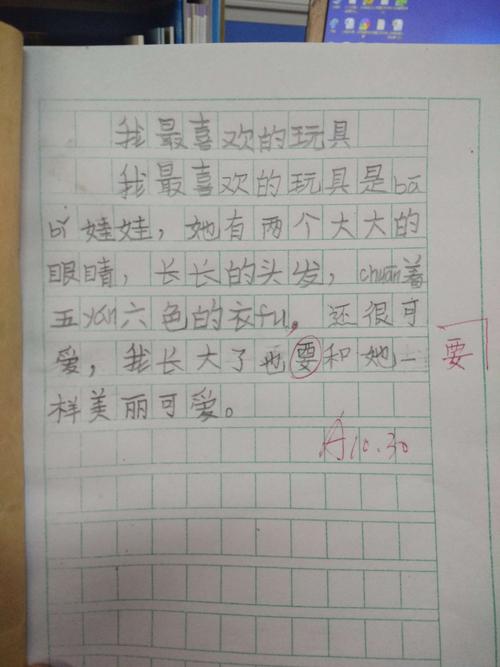 我最喜欢的玩具
我最喜欢的玩具是bā
bǐ娃娃，她有两个大大的
眼睛，长长的头发，chuān着
五yán六色的衣fu。还很可
爱，我长大了也要和她一
要
样美丽可爱。
A10.30